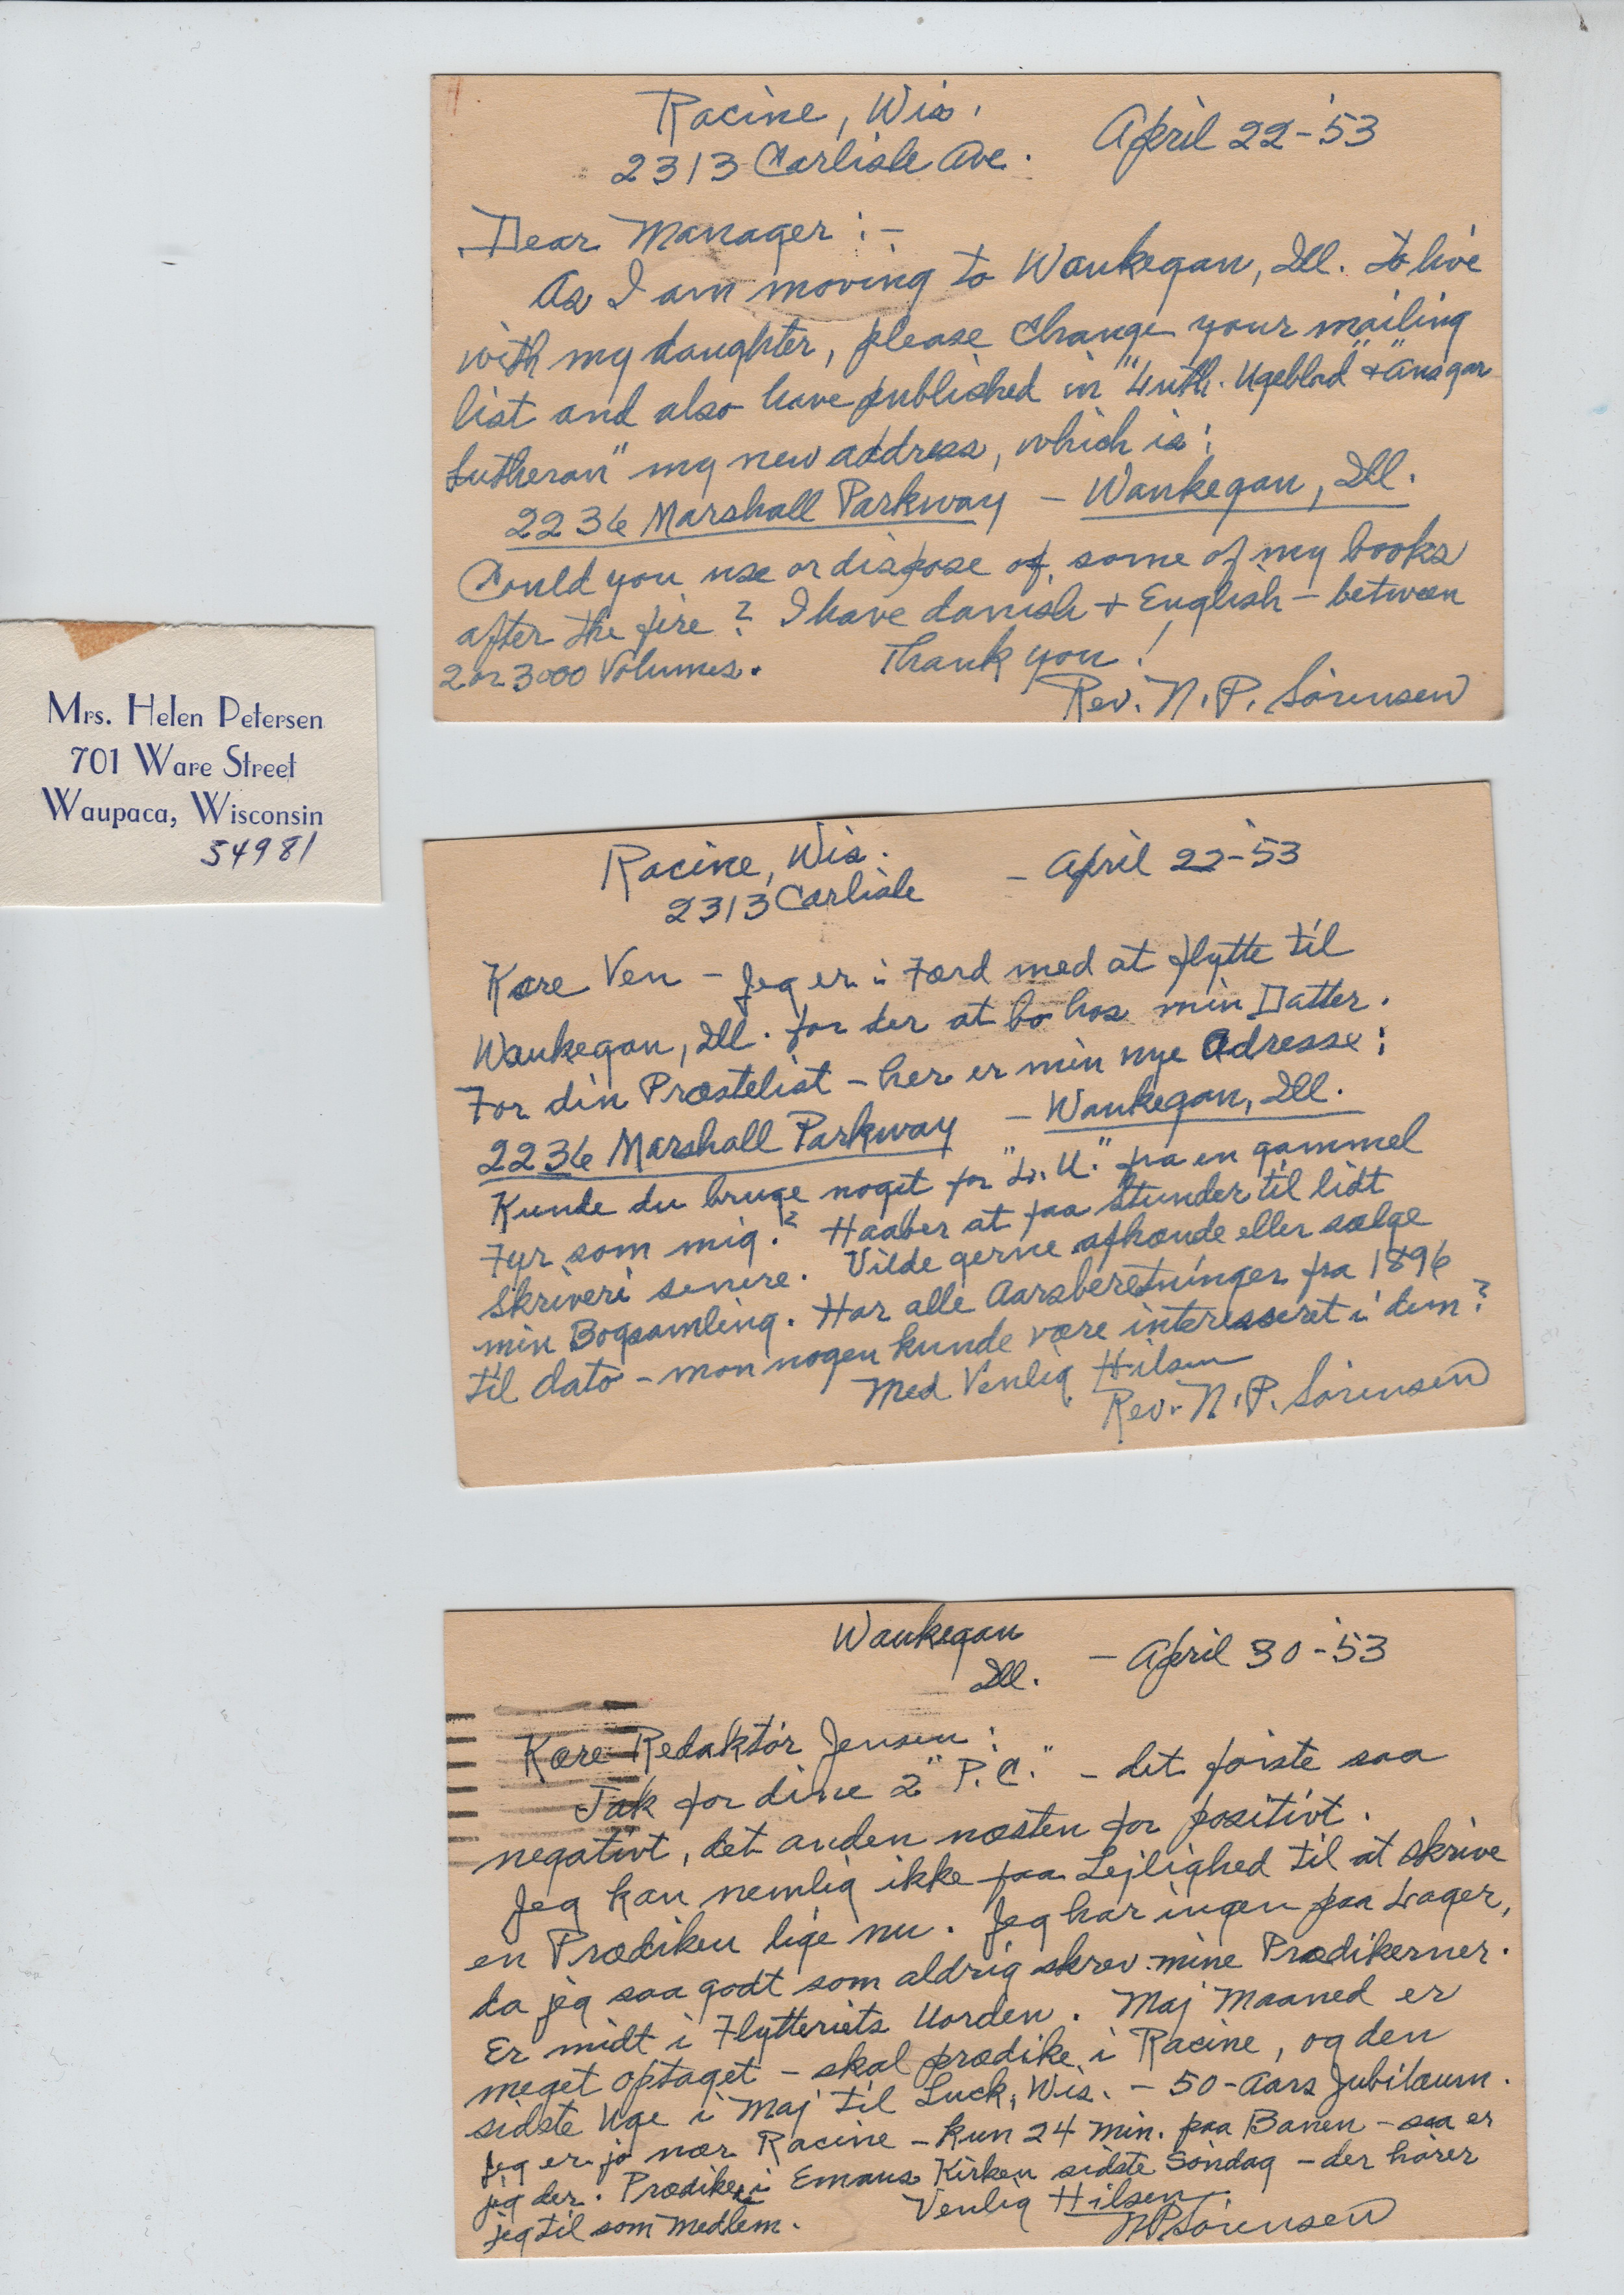 Racine, Wis.
2313 Carlisle Ave. April 22-'53
Dear Manager:-
As I am moving to Waukegan, Ill. to live
with my daughter, please change your mailing
list and also have published in "Luth. Ugeblad" + "Ansgar
Lutheran" my new address, which is:
2236 Marshall Parkway - Waukegan, Ill.
Could you use or dispose of some of my books
after the fire? I have danish + English - between
2 or 3000 Volumes. Thank you!
Rev. N. P. Sörensen
Mrs. Helen Petersen
701 Ware Street
Waupaca, Wisconsin
54981
Racine, Wis. - April 22-'53
2313 Carlisle
Kære Ven - Jeg er i Færd med at flytte til
Waukegan, Ill. for der at bo hos min Datter.
For din Præstelist - her er min nye Adresse:
2236 Marshall Parkway - Waukegan, Ill.
Kunde du bruge noget for "L. U." fra en gammel
Fyr som mig? Haaber at faa Stunder til lidt
Skriveri senere. Vilde gerne afhænde eller sælge
min Bogsamling. Har alle Aarsberetninger fra 1896
til dato - mon nogen kunde være interesseret i dem?
Med Venlig Hilsen
Rev. N. P. Sörensen
Waukegan
Ill. - April 30-'53
Kære Redaktör Jensen:
Tak for dine 2 "P.C." - det förste saa
negativt, det anden næsten for positivt.
Jeg kan nemlig ikke faa Lejlighed til at skrive
en Prædiken lige nu. Jeg har ingen paa Lager,
da jeg saa godt som aldrig skrev mine Prædikerner.
Er midt i Flytteriets Uorden. Maj Maaned er
meget optaget - skal prædike i Racine, og den
sidste Uge i Maj til Luck, Wis. - 50-Aars Jubilæum.
Jeg er jo nær Racine - kun 24 Min. paa Banen - saa er
jeg der. Prædike i Emaus Kirken sidste Söndag - der hörer
jeg til som Medlem. Venlig Hilsen
NPSörensen